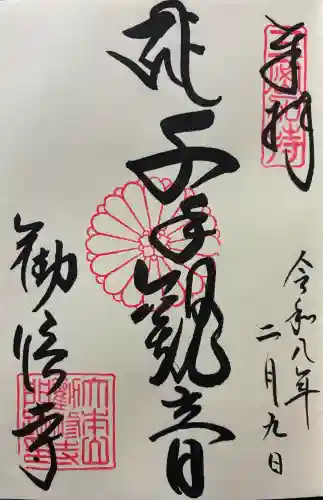 奉拝
令和八年
二月九日
千手観音
勧修寺
大本山